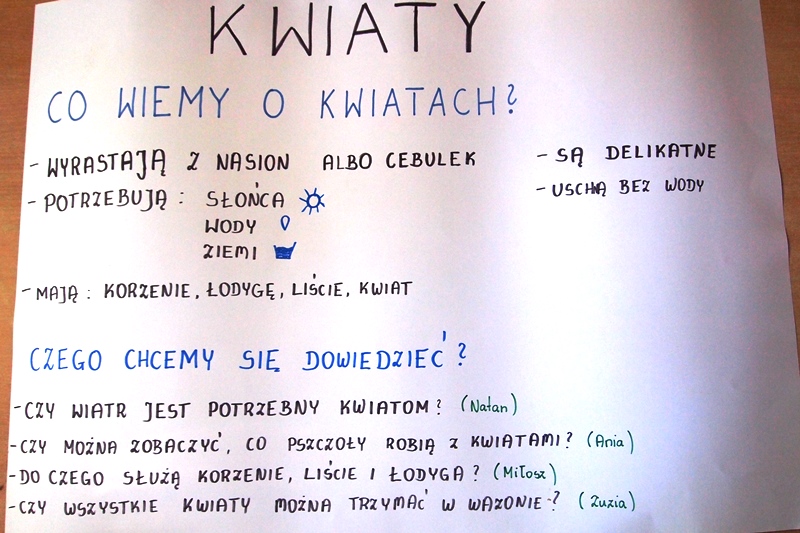 KWIATY
CO WIEMY O KWIATACH?
- WYRASTAJĄ Z NASION ALBO CEBULEK
- POTRZEBUJĄ : SŁOŃCA
WODY
ZIEMI
- MAJĄ : KORZENIE, ŁODYGĘ, LIŚCIE, KWIAT
- SĄ DELIKATNE
- USCHNĄ BEZ WODY
CZEGO CHCEMY SIĘ DOWIEDZIEĆ?
- CZY WIATR JEST POTRZEBNY KWIATOM? (Natan)
- CZY MOŻNA ZOBACZYĆ, CO PSZCZOŁY ROBIĄ Z KWIATAMI? (Ania)
- DO CZEGO SŁUŻĄ KORZENIE, LIŚCIE I ŁODYGA? (Miłosz)
- CZY WSZYSTKIE KWIATY MOŻNA TRZYMAĆ W WAZONIE? (Zuzia)